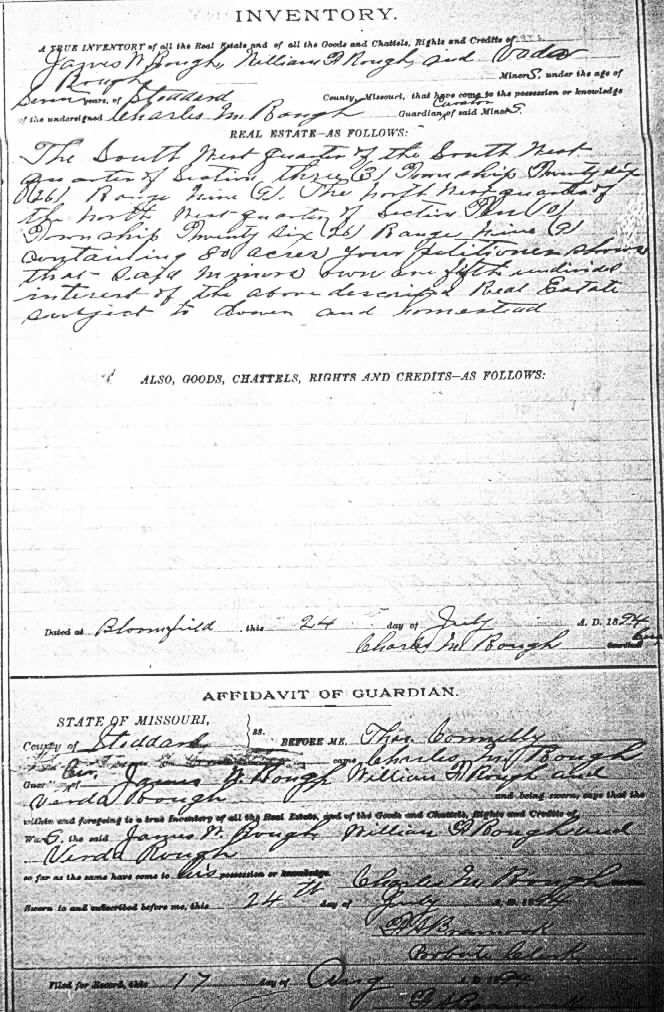 INVENTORY.
A TRUE INVENTORY of all the Real Estate and of all the Goods and Chattels, Rights and Credits of
James W Rough, William F Rough and Vada
Rough Minors. under the age of
years, of Stoddard County, Missouri, that have come to the possession or knowledge
of the undersigned Charles M Rough Guardian Curator of said Minors.
REAL ESTATE—AS FOLLOWS:
The South West quarter of the South West
quarter of Section three (3) Township Twenty six
(26) Range Nine (9). The North West quarter of
the North West quarter of Section Ten (10)
Township Twenty six (26) Range Nine (9)
containing 80 acres, your petitioner shows
that said minors own one fifth undivided
interest of the above described Real Estate
subject to dower and homestead
ALSO, GOODS, CHATTELS, RIGHTS AND CREDITS—AS FOLLOWS:
Dated at Bloomfield, this 24 day of July A. D. 1894
Charles M Rough Cur
Guardian
AFFIDAVIT OF GUARDIAN.
STATE OF MISSOURI,
County of Stoddard ss. BEFORE ME, Thos Connelly
came Charles M Rough
Cur. James W Rough William F Rough and
Verda Rough and being sworn, says that the
within and foregoing is a true Inventory of all the Real Estate, and of the Goods and Chattels, Rights and Credits of
Wards, the said James W. Rough, William F Rough and
Verda Rough
so far as the same have come to his possession or knowledge.
Charles M Rough
Sworn to and subscribed before me, this 24th day of July A. D. 1894
Probate Clerk
Filed for Record, this 17 day of Aug A. D. 1894